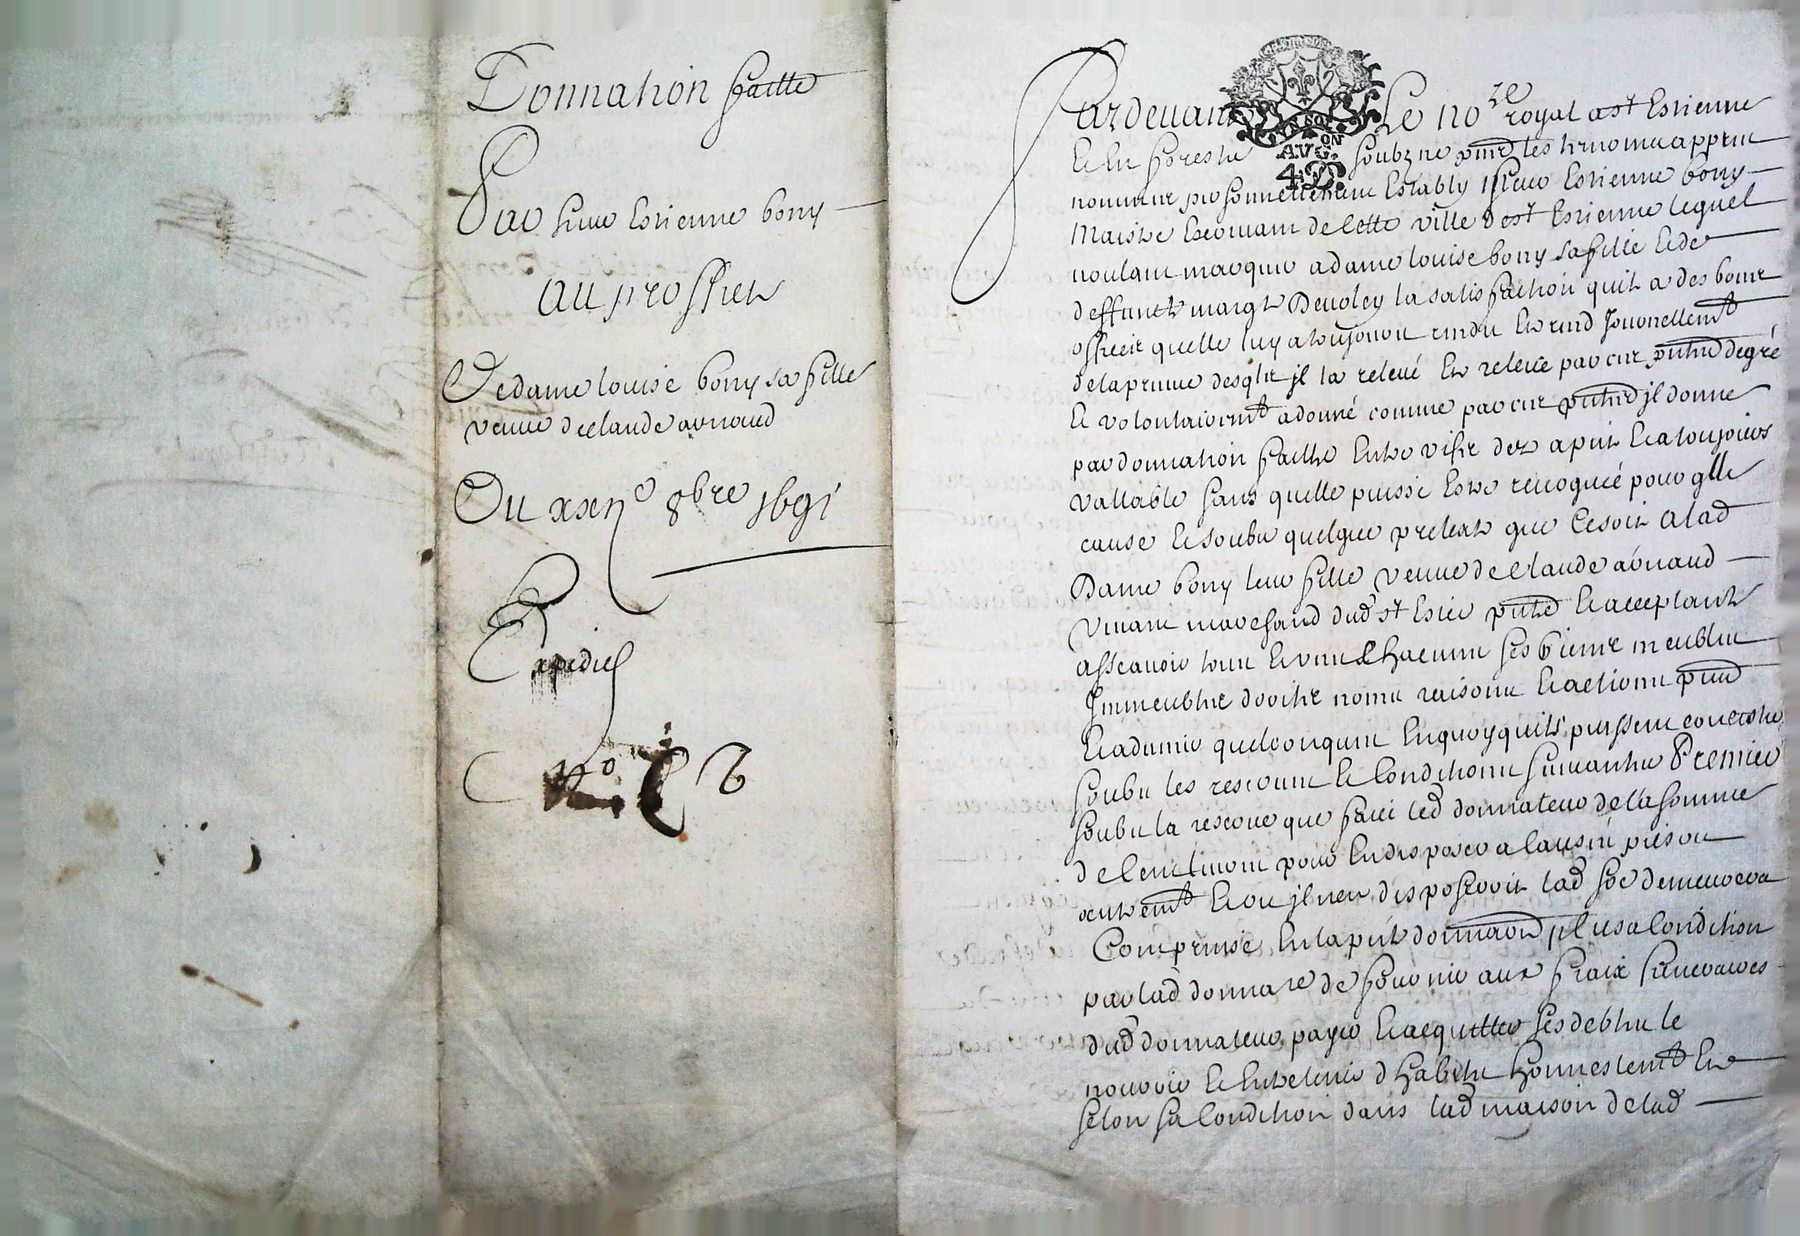 Donnation faitte
Par sieur Estienne bony
Au proffict
De dame louise bony sa fille
veuve de claude arnaud
Du xxij^e 8bre 1691
Expedié
N^o
Pardevant Le no^re royal a s^t Estienne
AVG.
4 D.
Et en forests soubzné p̃nt les tesmoins appres
nommes personnellement Estably sieur Estienne bony
Maistre Escrivain de cette ville de s^t Estienne lequel
voulant marquer a dame louise bony sa fille et de
deffuncte marg^te Devoley la satisfaction quil a des bons
offices quelle luy a tousjours rendu et rend journellem^t
de la preuve desq^ls jl la relevé Et releve par ces p̃ntes de gré
Et volontairem^t a donné comme par ces p̃ntes jl donne
par donnation faitte entre vifs des a p̃nt Et a toujours
vallable sans quelle puisse Estre revoquée pour q^lle
cause Et soubs quelque pretexte que ce soit a lad
Dame bony leur fille veuve de claude arnaud
vivant marchand dud s^t Estie p̃nte Et acceptante
assçavoir tous Et uns chacuns ses biens meubles
Immeubles droits noms raisons Et actions p̃nts
Et advenir quelconques En quoy quils puissent consister
soubs les reserves Et Conditions suivantes Premier
soubs la reserve que faict led donnateur de la somme
de Cent livres pour En disposer a la vie ou
autrem^t Et ou jl nen disposeroit lad so^e demeurera
Comprinse En la p̃nte donnaon plus a Condition
par lad donna^re de fournir aux fraix funeraires
dud donnateur payer Et acquitter ses debtes le
nourrir Et Entretenir d habits honnestem^t Et
selon sa Condition dans lad maison de lad